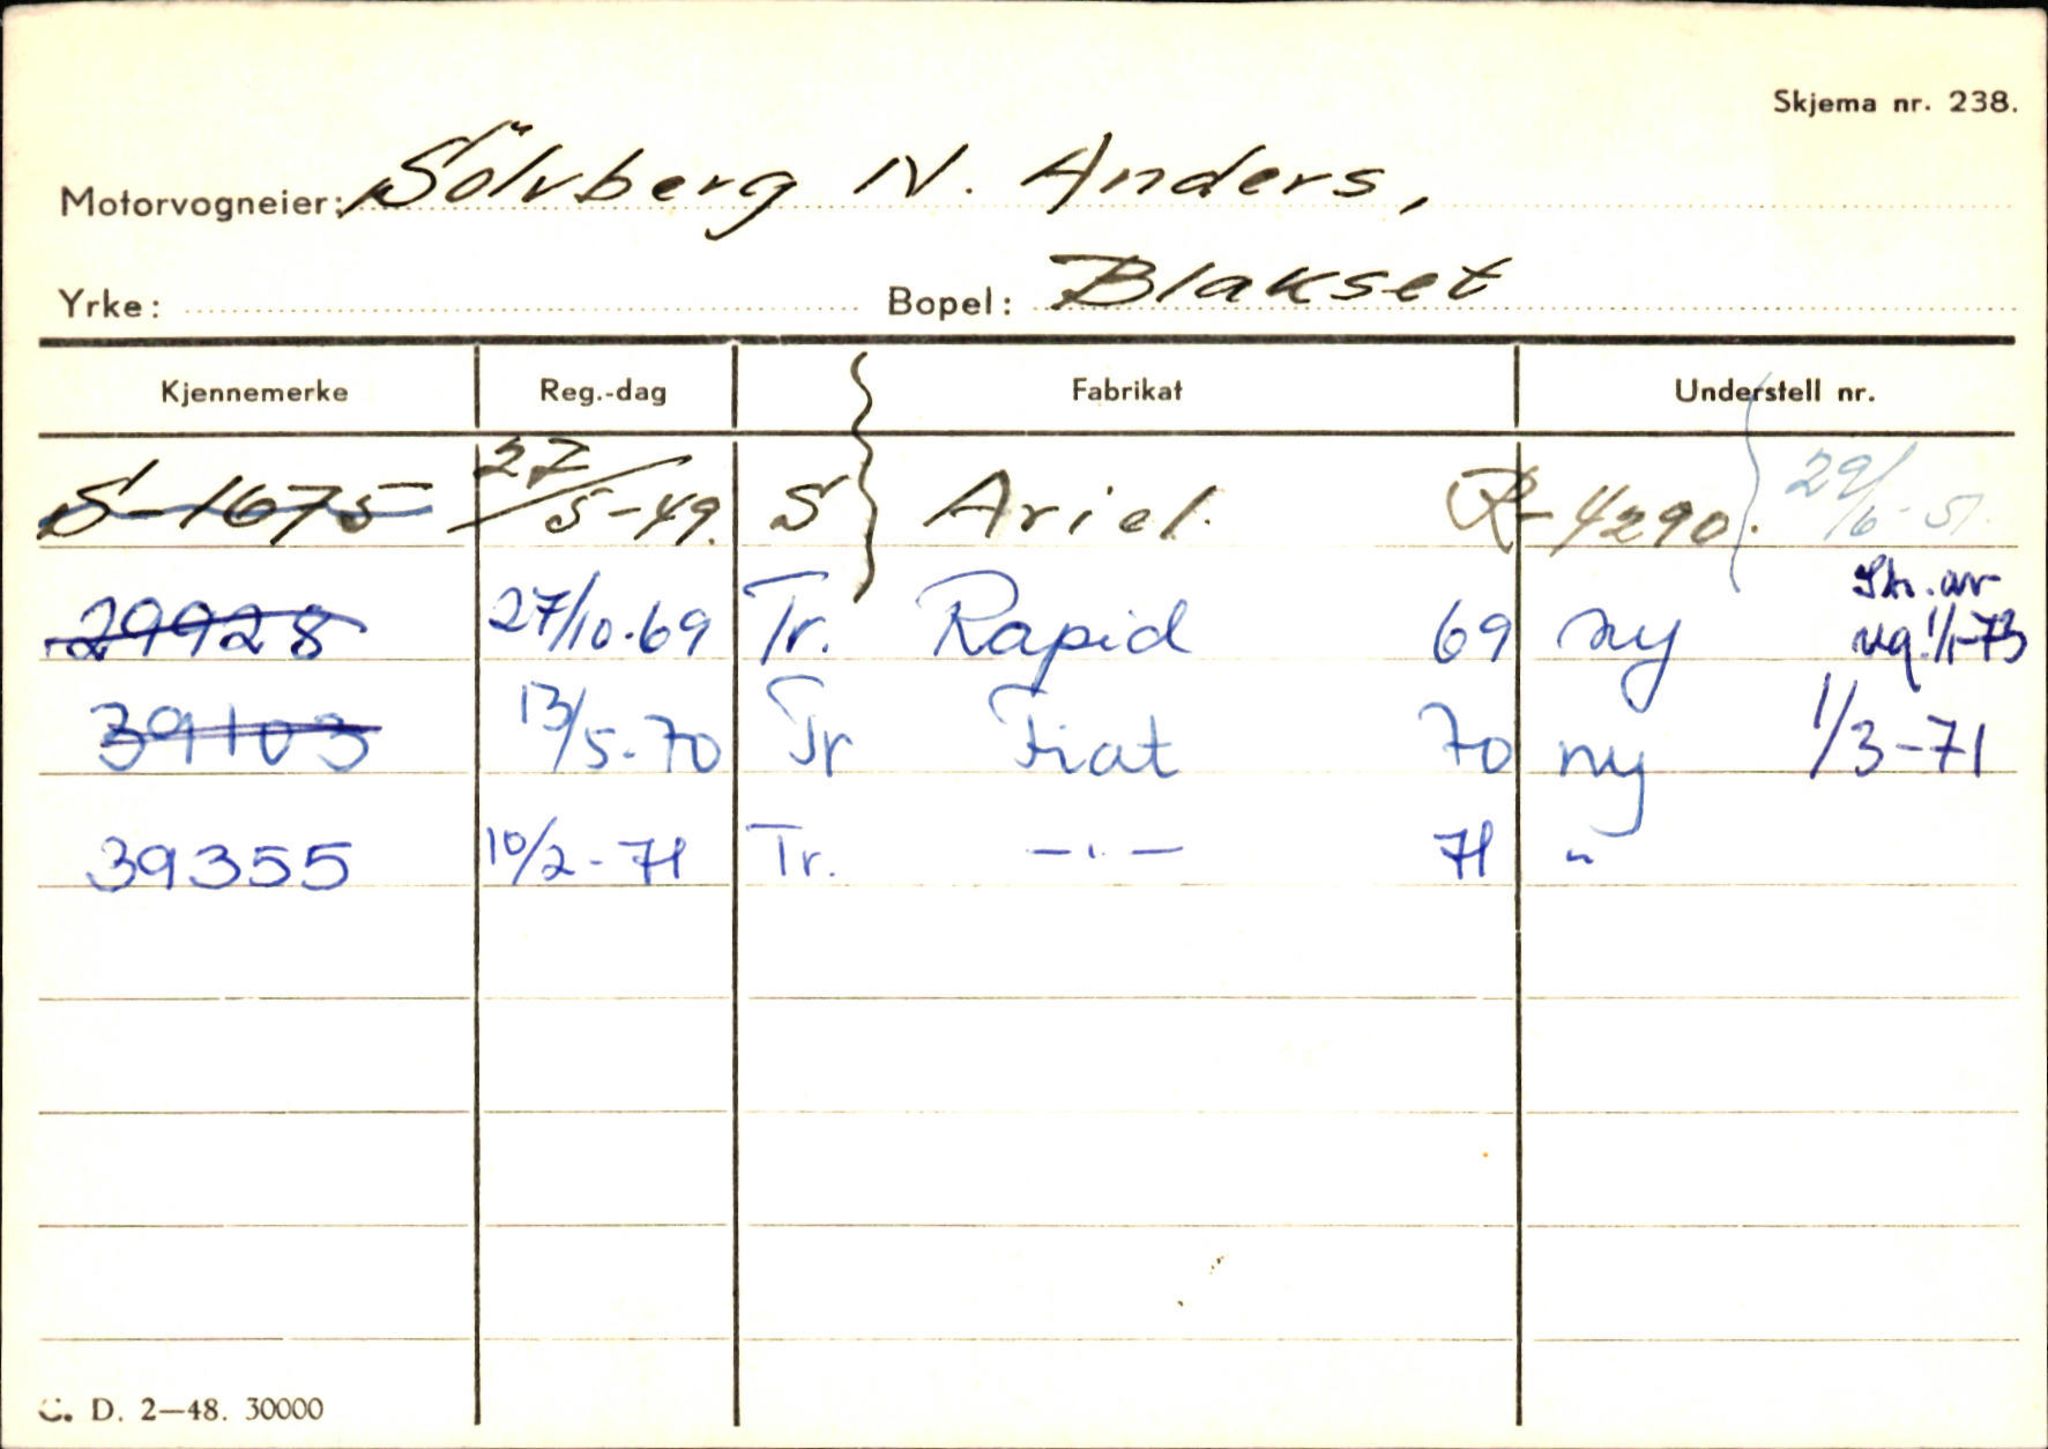 Skjema nr. 238.
Motorvogneier: Sölvberg N. Anders,
Yrke: Bopel: Blakset
Kjennemerke Reg.-dag Fabrikat Understell nr.
S-1675 27/5-49. S Ariel. R-4290. 29/6-51.
29928 27/10-69 Tr. Rapid 69 ny Str. av reg. 1/1-73
39103 13/5-70 Tr Fiat 70 ny 1/3-71
39355 10/2-71 Tr. —·— 71 "
C. D. 2—48. 30000